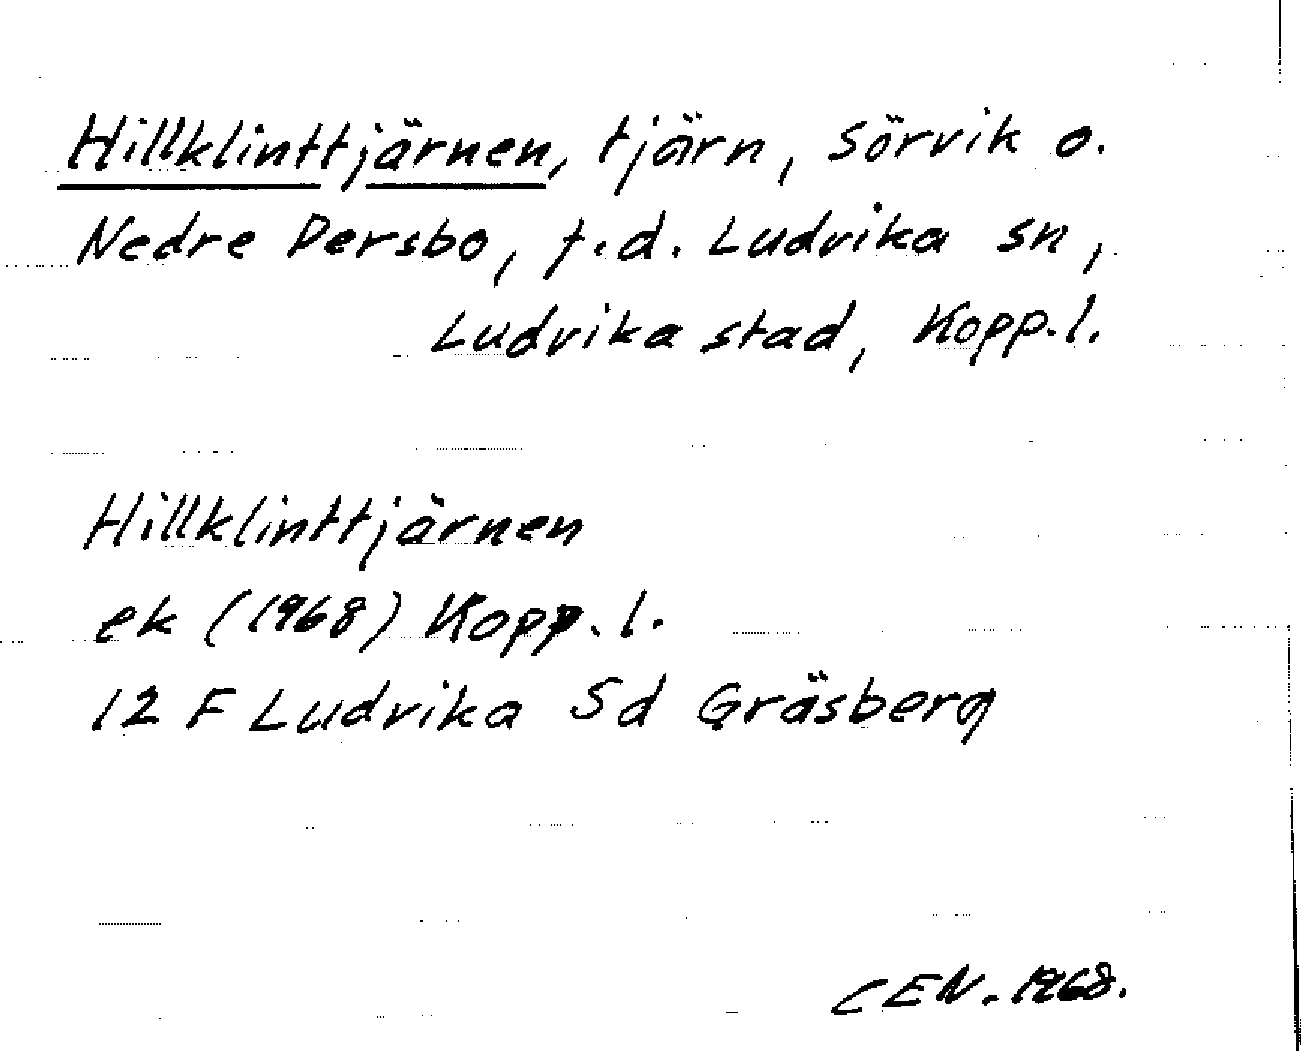 Hillklinttjärnen, tjärn, Sörvik o.
Nedre Persbo, f.d. Ludvika sn,
Ludvika stad, Kopp.l.
Hillklinttjärnen
ek (1968) Kopp.l.
12 F Ludvika Sd Gräsberg
CEN. 1968.